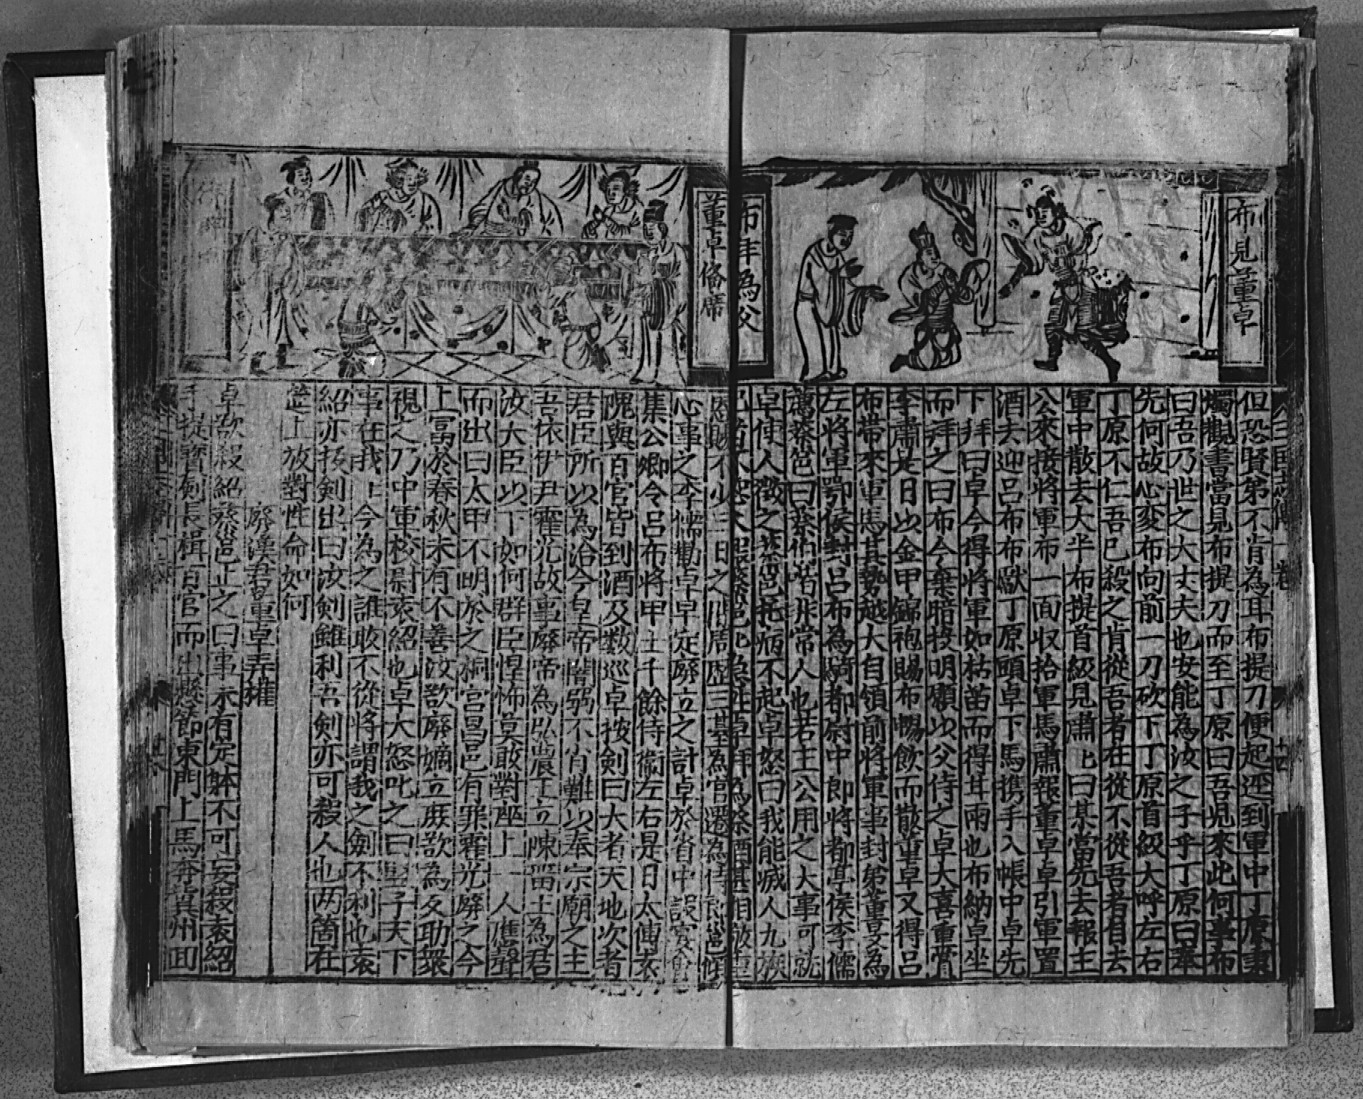 布見董卓
布拜為父
但恐賢弟不肯為耳布提刀便起逕到軍中丁原秉
燭觀書當見布提刀而至丁原曰吾児來此何事布
曰吾乃世之大丈夫也安能為汝之子乎丁原曰奉
先何故心変布向前一刀砍下丁原首級大呼左右
丁原不仁吾已殺之肯從吾者在從不從吾者自去
軍中散去大半布提首級見肅肅曰某當先去報主
公來接將軍布一面収拾軍馬肅報董卓卓引軍置
酒去迎吕布布獻丁原頭卓下馬携手入帳中卓先
下拜曰卓今得將軍如枯苗而得甘雨也布納卓坐
而拜之曰布今棄暗投明願以父侍之卓大喜重賞
李肅是日以金甲錦袍賜布暢飲而散董卓又得吕
布帶來軍馬其勢越大自領前將軍事封弟董旻為
左將軍鄠侯封吕布為騎都尉中郎將都亭侯李儒
薦蔡邕曰蔡伯喈非常人也若主公用之大事可就
卓使人徵之蔡邕托病不起卓怒曰我能滅人九族
董卓俻席
恩賜不少三日之間周歷三臺為官遷為侍郎邕傾
心事之李儒勸卓早定廢立之計卓於省中設宴會
集公卿令吕布將甲士千餘侍衛左右是日太傅袁
隗與百官皆到酒及数巡卓按劍曰大者天地次者
君臣所以為治今皇帝闇弱不肖難以奉宗廟之主
吾依伊尹霍光故事廢帝為弘農王立陳留王為君
汝大臣以下如何群臣惶怖莫敢對座上一人應聲
而出曰太甲不明放之桐宮昌邑有罪霍光廢之今
上富於春秋未有不善汝欲廢嫡立庶欲為反助衆
視之乃中軍校尉袁紹也卓大怒叱之曰竪子天下
事在我上今為之誰敢不從將謂我之劍不利也袁
紹亦拔劍出曰汝劍雖利吾劍亦可殺人也两箇在
筵上放對性命如何
廢漢君董卓弄權
卓欲殺紹蔡邕止之曰事未有定躰不可妄殺袁紹
手提寶劍長楫百官而出懸節東門上馬奔冀州囬